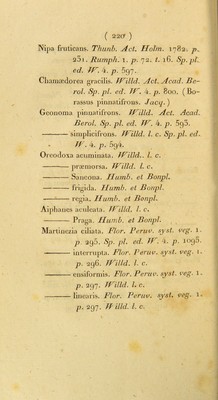 ( 220 )
Nipa fruticans. Thunb. Act. Holm. 1782. p.
231. Rumph. 1. p. 72. t. 16. Sp. pl.
ed. W. 4. p. 597.
Chamædorea gracilis. Willd. Act. Acad. Be-
rol. Sp. pl. ed. W. 4. p. 800. (Bo-
rassus pinnatifrons. Jacq.)
Geonoma pinnatifrons. Willd. Act. Acad.
Berol. Sp. pl. ed. W. 4. p. 593.
——— simplicifrons. Willd. l. c. Sp. pl. ed.
W. 4. p. 594.
Oreodoxa acuminata. Willd. l. c.
——— præmorsa. Willd. l. c.
——— Sancona. Humb. et Bonpl.
——— frigida. Humb. et Bonpl.
——— regia. Humb. et Bonpl.
Aiphanes aculeata. Willd. l. c.
——— Praga. Humb. et Bonpl.
Martinezia ciliata. Flor. Peruv. syst. veg. 1.
p. 295. Sp. pl. ed. W. 4. p. 1095.
——— interrupta. Flor. Peruv. syst. veg. 1.
p. 296. Willd. l. c.
——— ensiformis. Flor. Peruv. syst. veg. 1.
p. 297. Willd. l. c.
——— linearis. Flor. Peruv. syst. veg. 1.
p. 297. Willd. l. c.